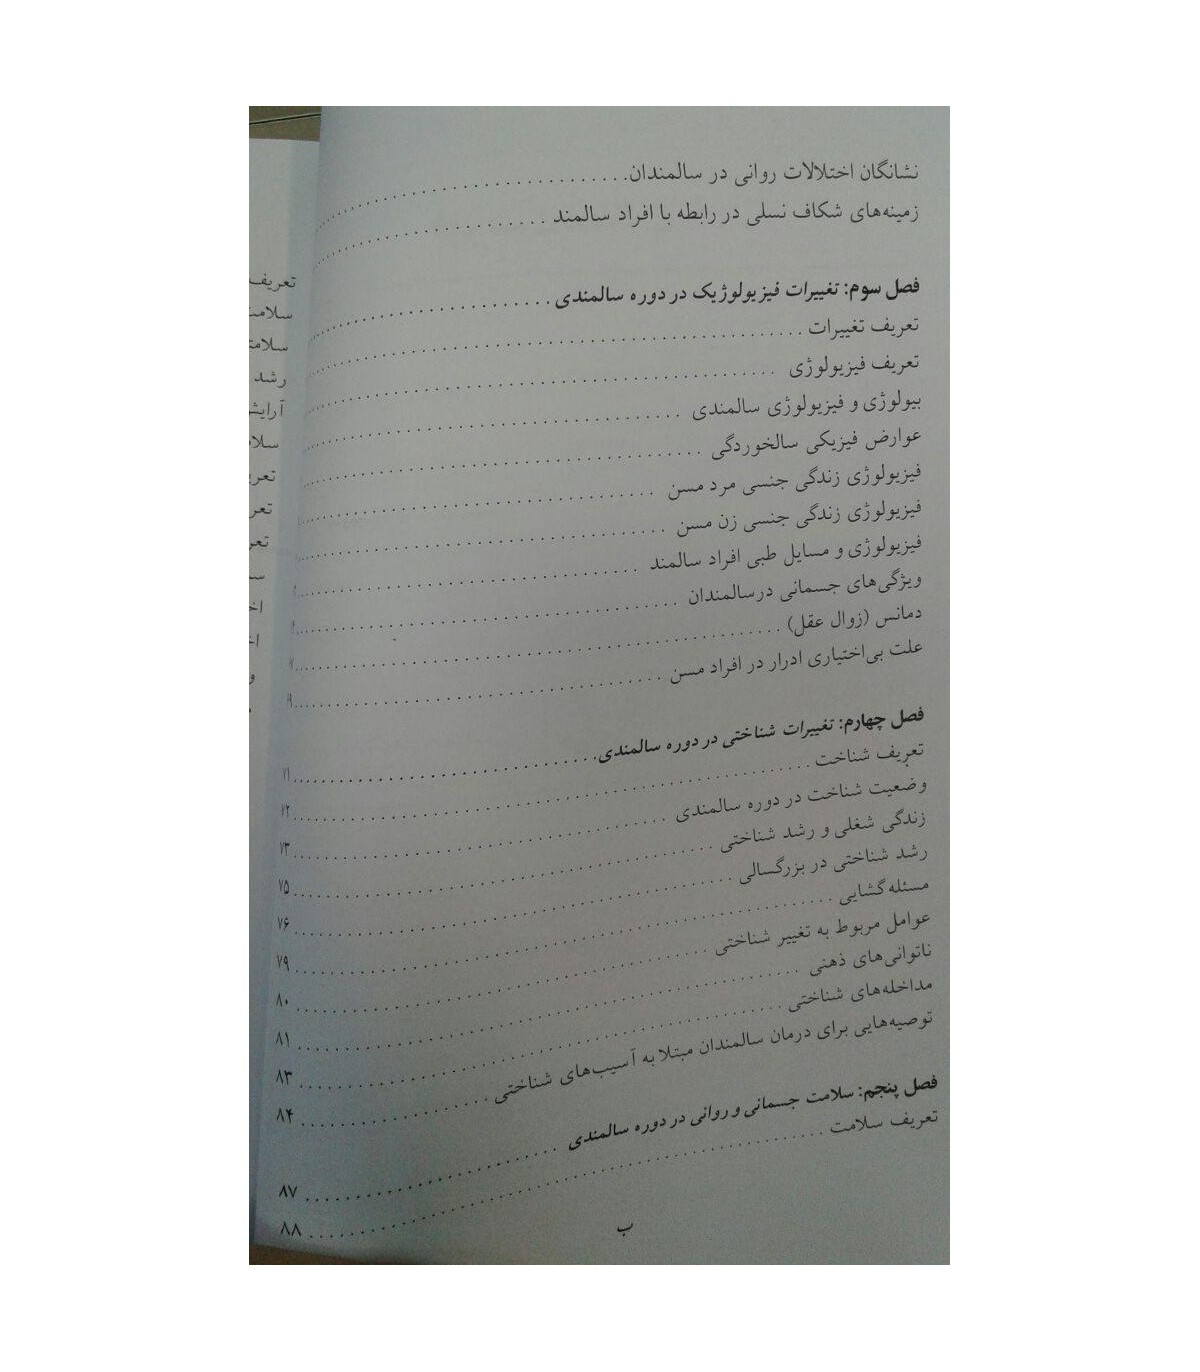 نشانگان اختلالات روانی در سالمندان
زمینه‌های شکاف نسلی در رابطه با افراد سالمند
فصل سوم: تغییرات فیزیولوژیک در دوره سالمندی
تعریف تغییرات
تعریف فیزیولوژی
بیولوژی و فیزیولوژی سالمندی
عوارض فیزیکی سالخوردگی
فیزیولوژی زندگی جنسی مرد مسن
فیزیولوژی زندگی جنسی زن مسن
فیزیولوژی و مسایل طبی افراد سالمند
ویژگی‌های جسمانی درسالمندان
دمانس (زوال عقل)
علت بی‌اختیاری ادرار در افراد مسن
فصل چهارم: تغییرات شناختی در دوره سالمندی ۷۱
تعریف شناخت ۷۲
وضعیت شناخت در دوره سالمندی ۷۳
زندگی شغلی و رشد شناختی ۷۵
رشد شناختی در بزرگسالی ۷۶
مسئله‌گشایی ۷۹
عوامل مربوط به تغییر شناختی ۸۰
ناتوانی‌های ذهنی ۸۱
مداخله‌های شناختی ۸۳
توصیه‌هایی برای درمان سالمندان مبتلا به آسیب‌های شناختی ۸۴
فصل پنجم: سلامت جسمانی و روانی در دوره سالمندی ۸۷
تعریف سلامت ۸۸
ب
تعریف
رشد